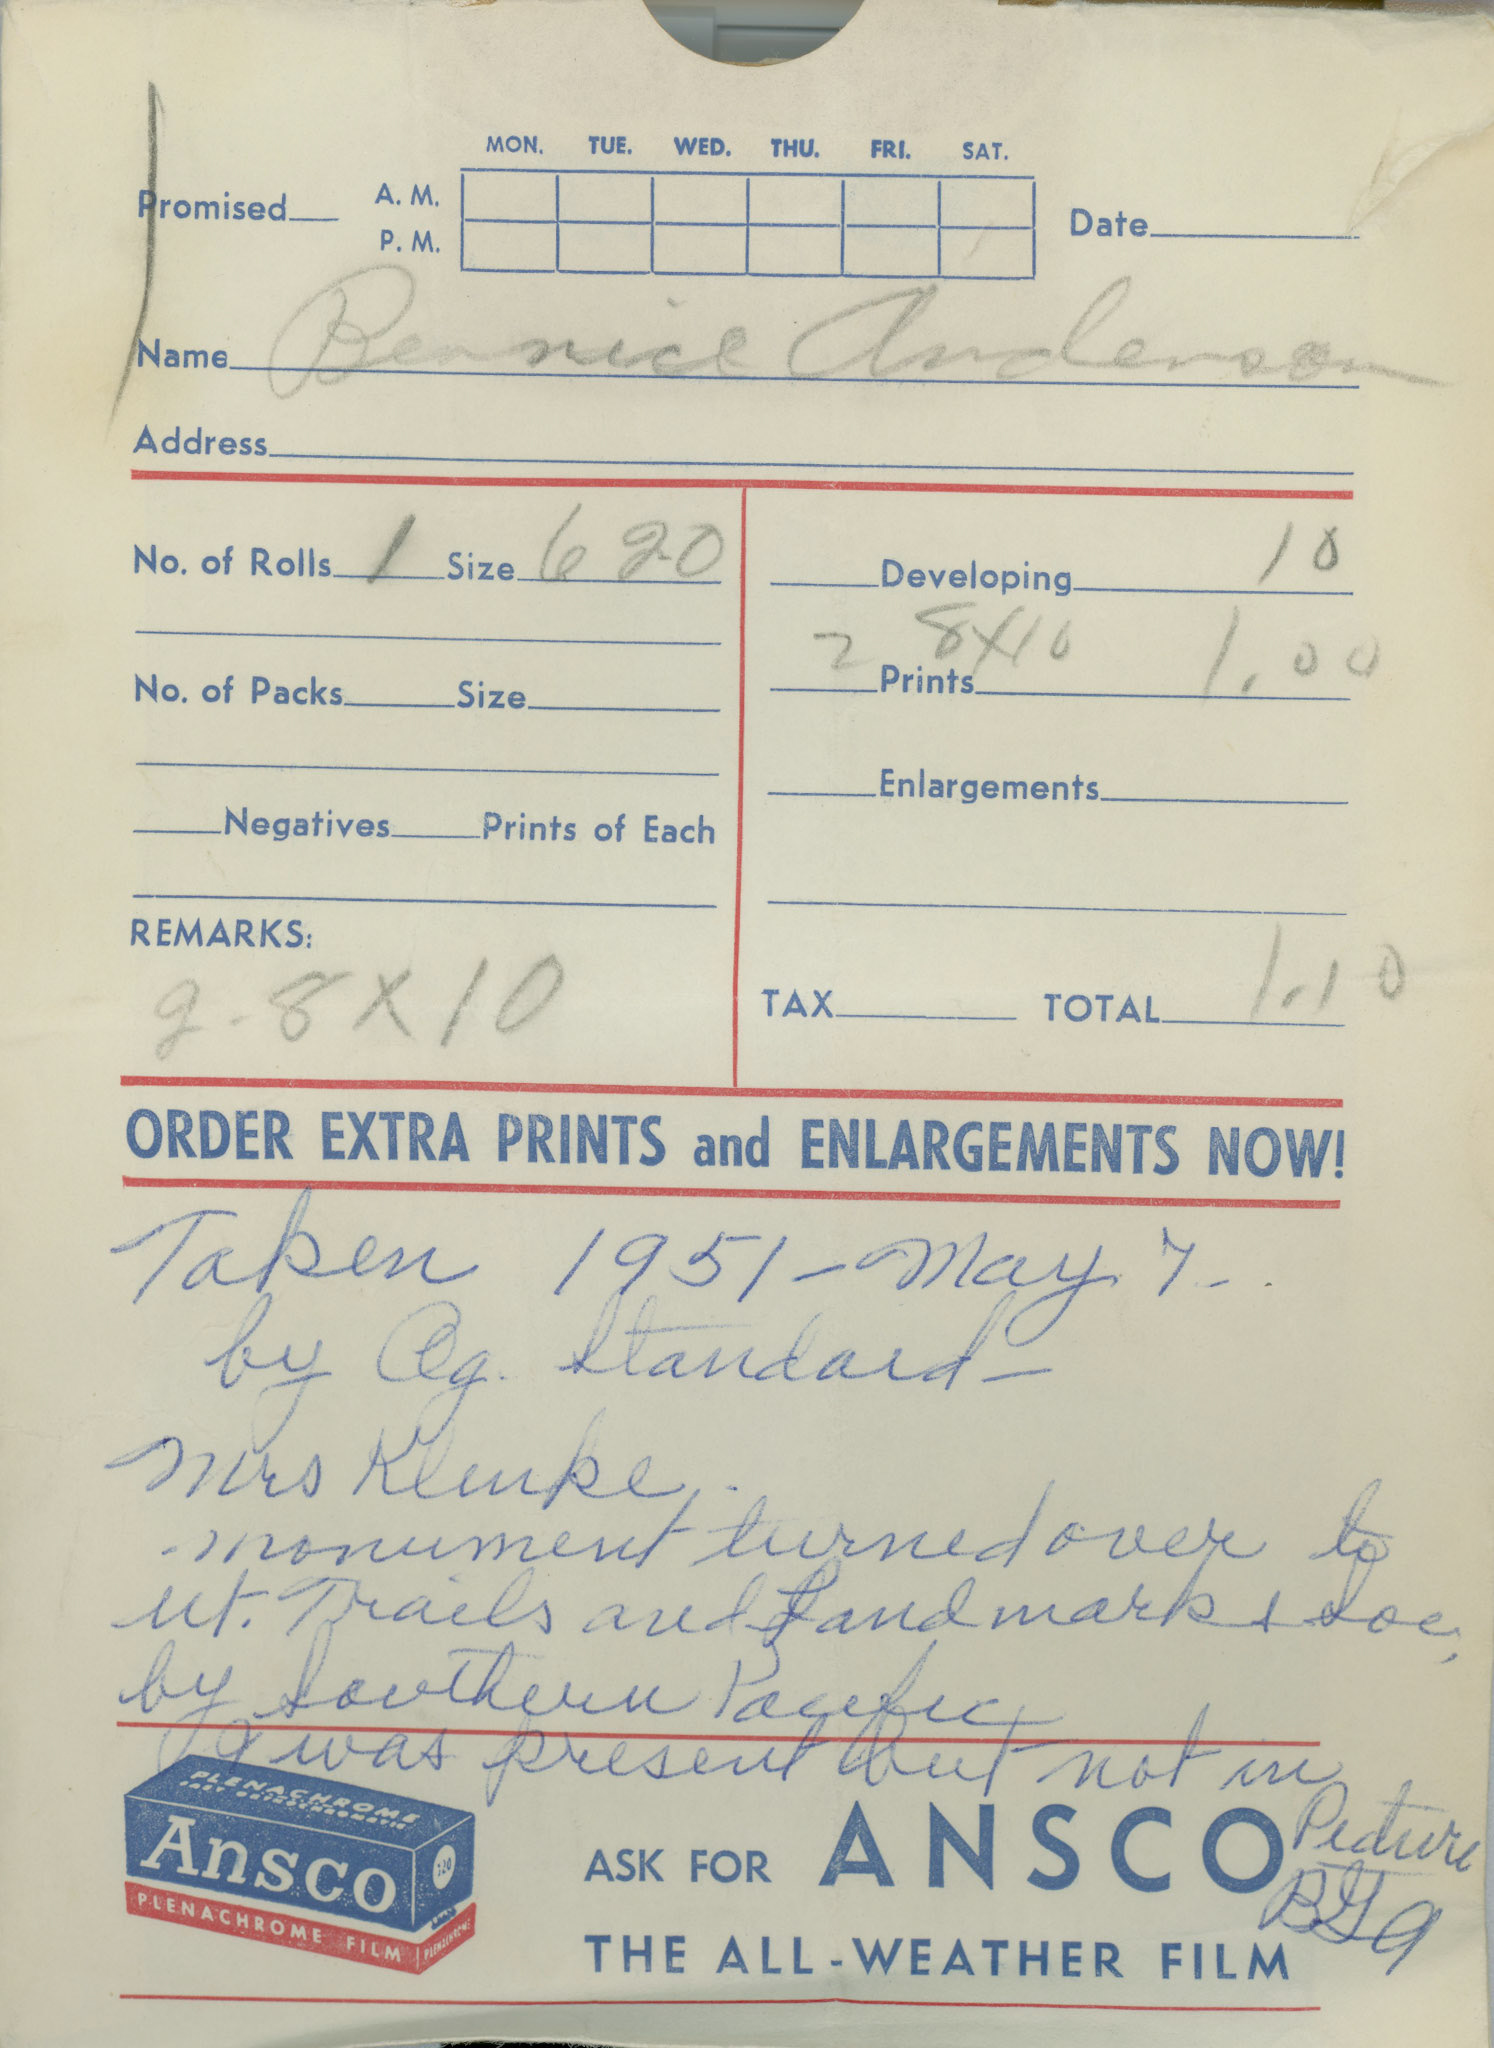 MON. TUE. WED. THU. FRI. SAT.
Promised A. M.
P. M.
Date
Name Bernice Anderson
Address
No. of Rolls 1 Size 620
Developing 10
2 Prints 8X10 1.00
No. of Packs Size
Enlargements
Negatives Prints of Each
REMARKS:
2-8X10
TAX TOTAL 1.10
ORDER EXTRA PRINTS and ENLARGEMENTS NOW!
Taken 1951 - May 7 -
by Og. Standard -
Mrs Klenke.
monument turned over to
Ut. Trails and Landmarks Soc,
by Southern Pacific
I was present but not in
Picture
BGA
PLENACHROME
Ansco
120
PLENACHROME FILM
PLENACHROME
ASK FOR ANSCO
THE ALL-WEATHER FILM